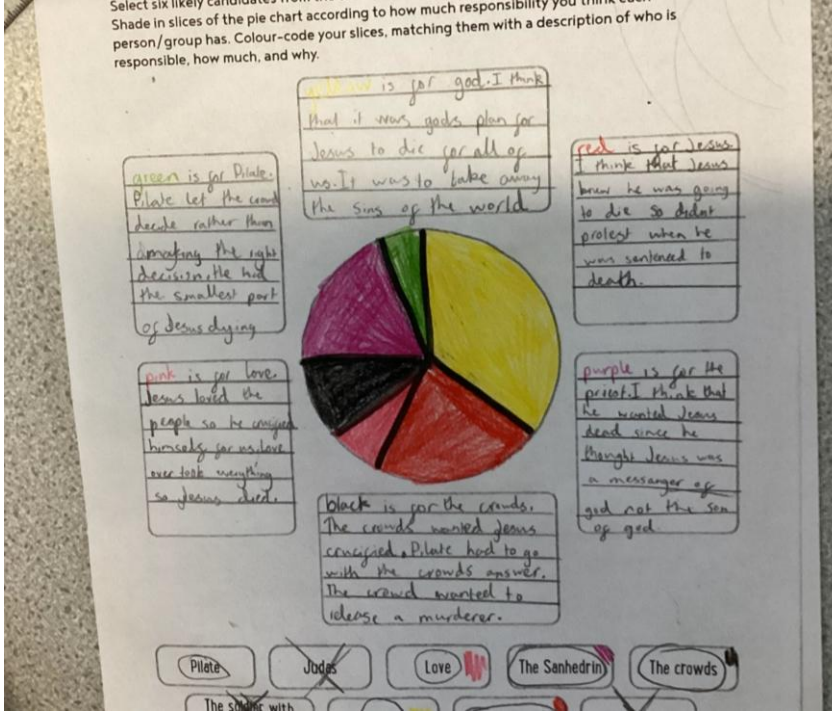 Select six likely candidates from the
Shade in slices of the pie chart according to how much responsibility you think each
person/group has. Colour-code your slices, matching them with a description of who is
responsible, how much, and why.
yellow is for god. I think
that it was gods plan for
Jesus to die for all of
us. It was to take away
the sins of the world
green is for Pilate.
Pilate let the crowd
decide rather than
making the right
decision. He had
the smallest part
of Jesus dying
red is for Jesus
I think that Jesus
knew he was going
to die so didnt
protest when he
was sentenced to
death.
pink is for love.
Jesus loved the
people so he crucified
himself for us. love
over took everything
so Jesus died.
purple is for the
priest. I think that
he wanted Jesus
dead since he
thought Jesus was
a messanger of
god not the son
of god.
black is for the crowds.
The crowds wanted Jesus
crucified. Pilate had to go
with the crowds answer.
The crowd wanted to
release a murderer.
Pilate
Judas
Love
The Sanhedrin
The crowds
The soldier with